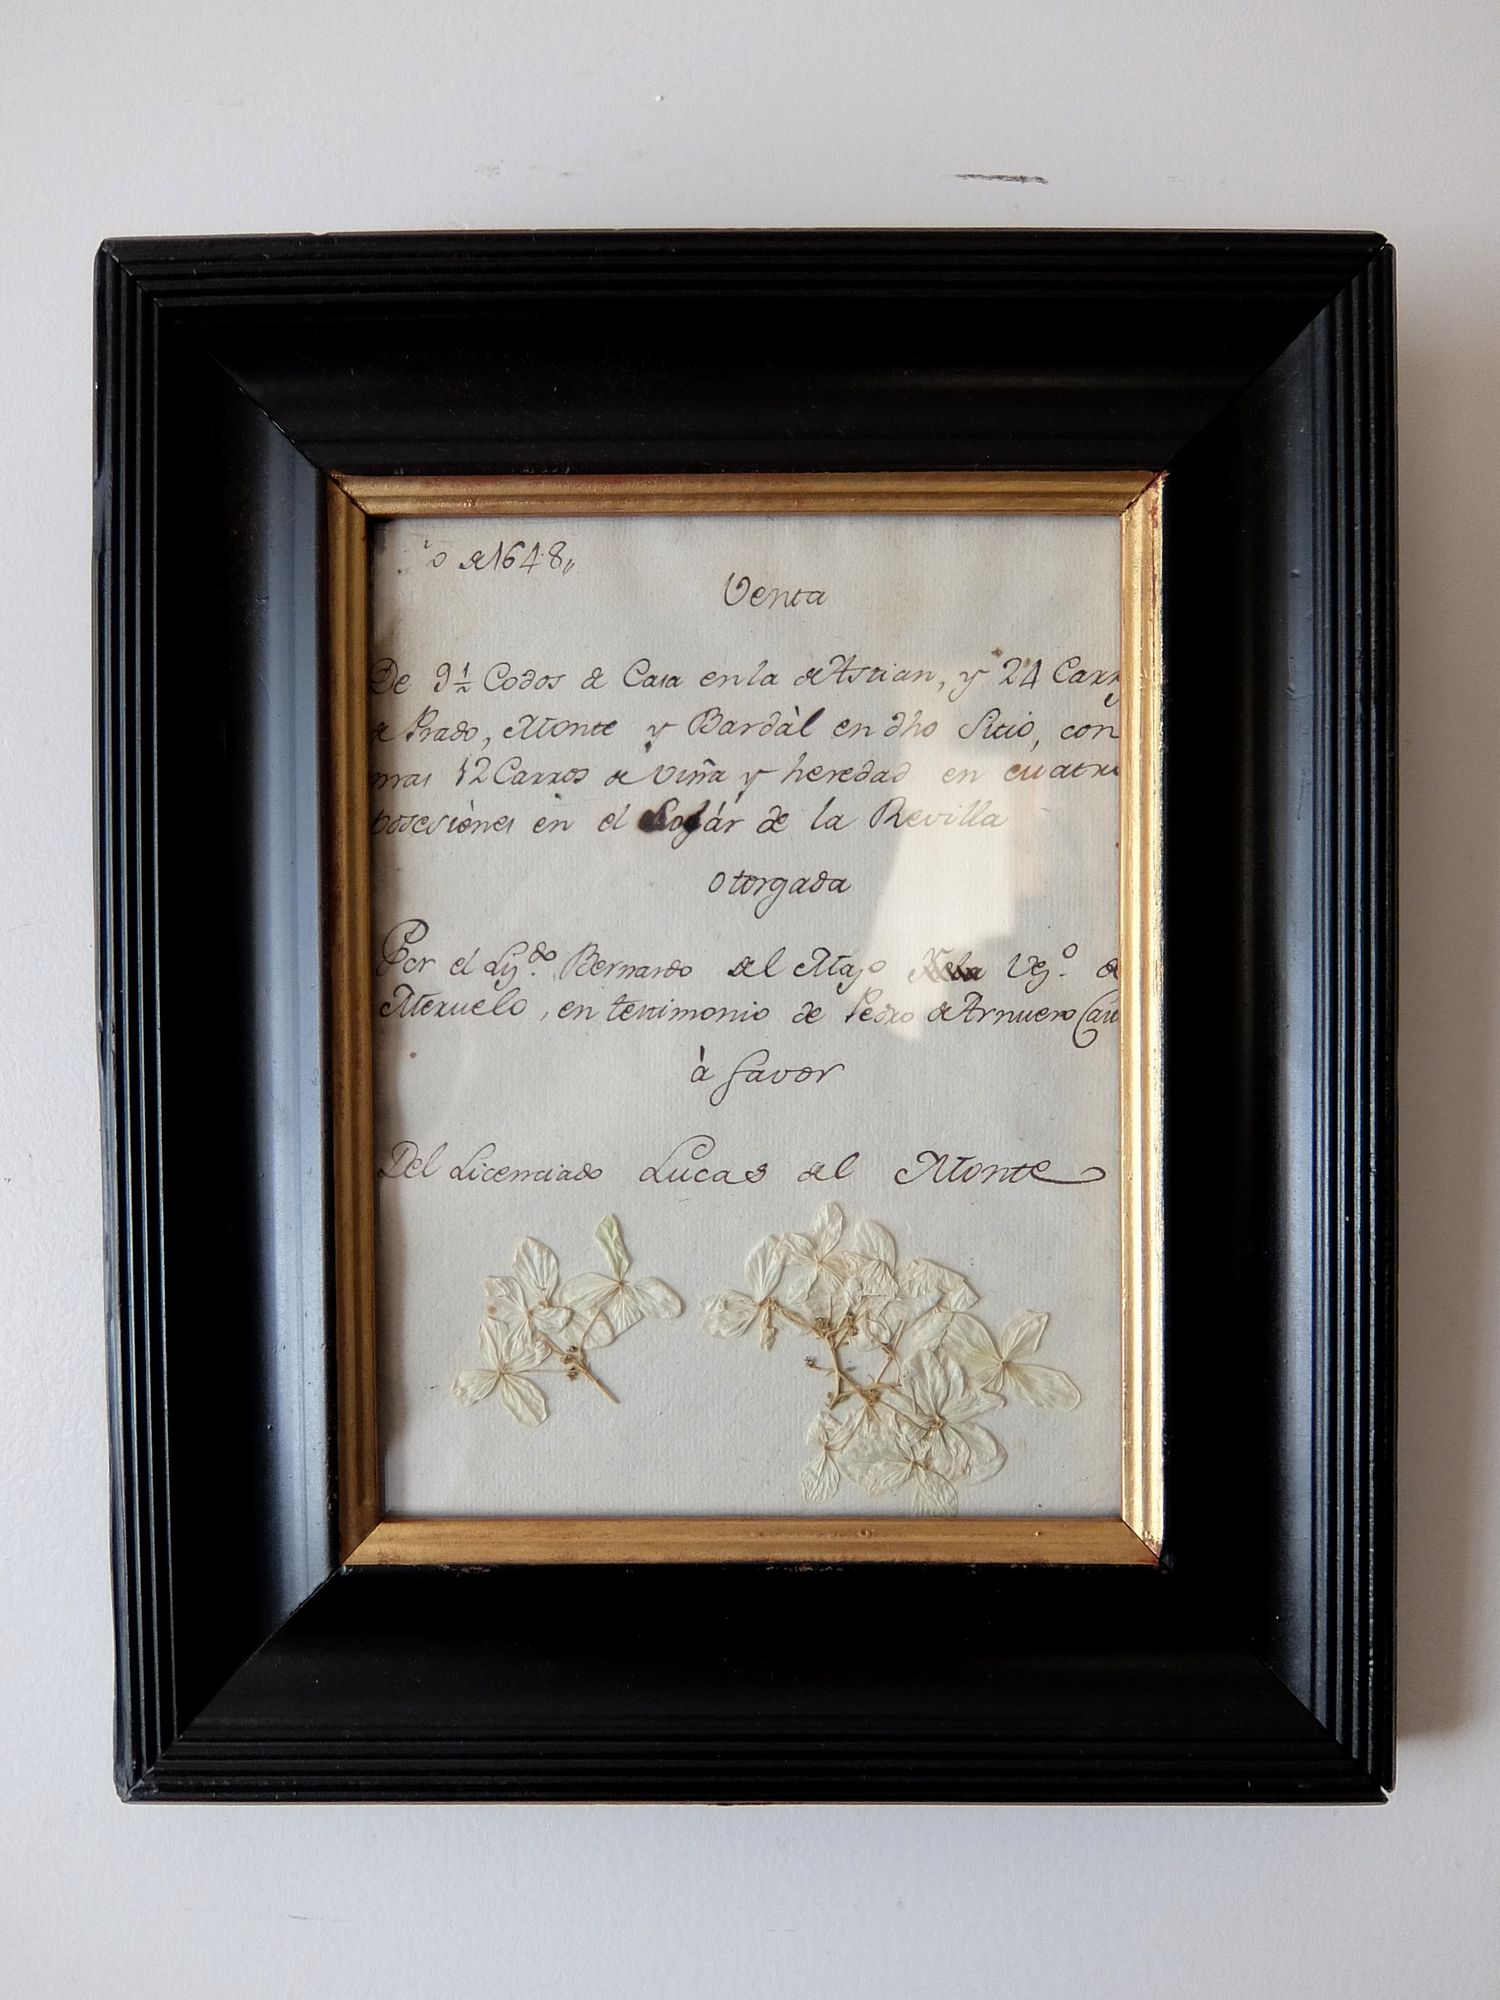 º de 1648,,
Venta
De 9½ Codos de Casa en la de Astian, y 24 Carr
de Prado, Monte y Bardàl en dho Sitio, con
mas 12 Carros de viña y heredad en cuatr
posesiònes en el Lugár de la Revilla
otorgada
Por el Lizdo. Bernardo del Mazo Vezo. de
Meruelo, en testimonio de Pedro de Arnuero
à favor
Del Licenciado Lucas del Monte